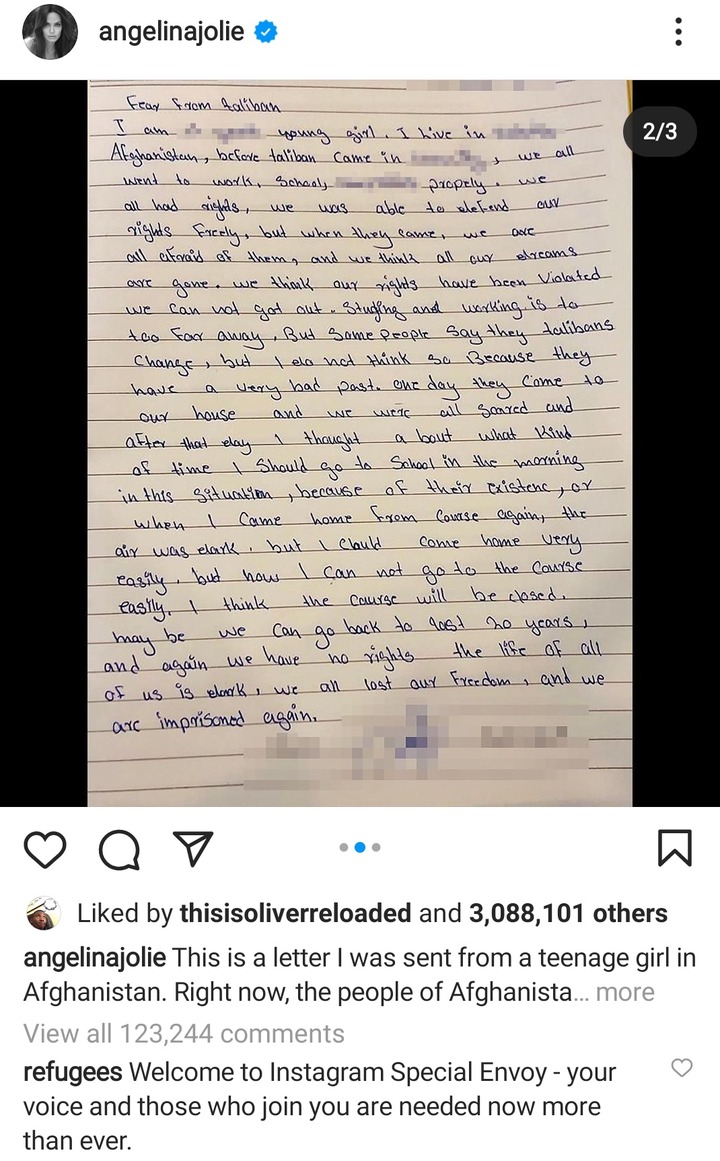 angelinajolie
2/3
Fear from taliban
I am young girl. I live in
Afghanistan, before taliban came in , we all
went to work, School, proprly. we
all had rights, we was able to defend our
rights Freely, but when they came, we are
all afraid of them, and we think all our dreams
are gone. we think our rights have been Violated
we can not got out. Studing and working is to
too far away. But Some people Say they talibans
Change, but I do not think so Because they
have a very bad past. one day they Come to
our house and we were all scared and
after that day I thought a bout what kind
of time I Should go to School in the morning
in this situation, because of their existenc, or
when I Came home from Course again, the
air was dark. but I Could come home very
easily. but now I can not go to the Course
easily. I think the Course will be closed.
may be we can go back to last 20 years,
and again we have no rights the life of all
of us is dark, we all lost our Freedom, and we
are imprisoned again.
Liked by thisisoliverreloaded and 3,088,101 others
angelinajolie This is a letter I was sent from a teenage girl in
Afghanistan. Right now, the people of Afghanista... more
View all 123,244 comments
refugees Welcome to Instagram Special Envoy - your
voice and those who join you are needed now more
than ever.